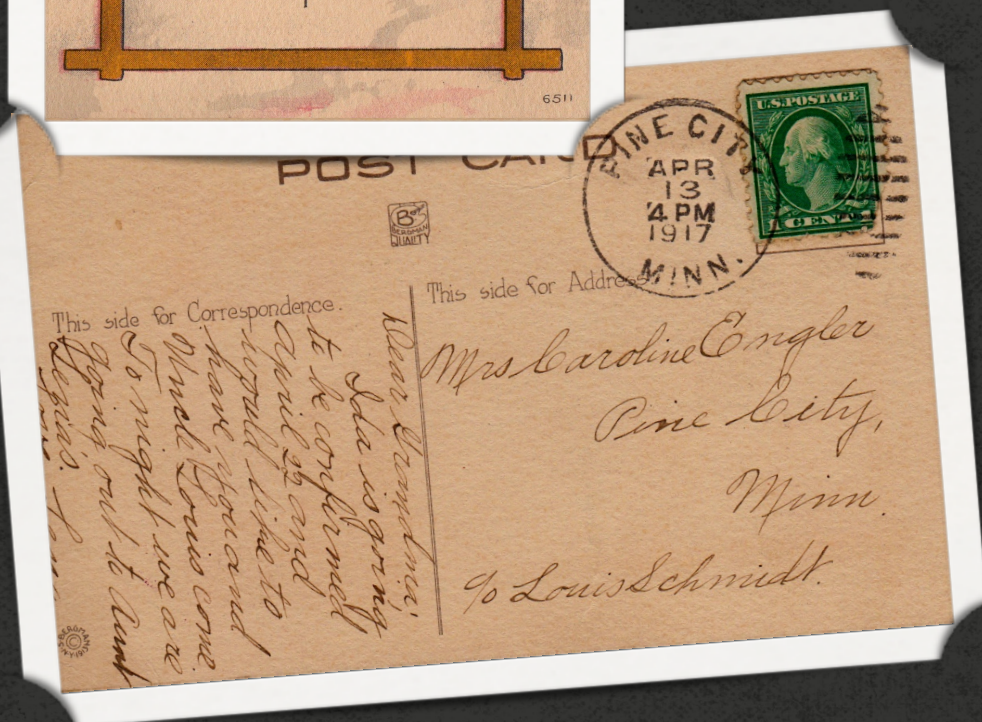 6511
POST CARD
PINE CITY
APR
13
4 PM
1917
MINN.
U.S. POSTAGE
1 CENT
BERGMAN
QUALITY
This side for Correspondence.
This side for Address.
Dear Grandma;
Ida is going
to be confirmed
April 22 and
would like to
have you and
Uncle Louis come
To night we are
going out to Aunt
Lena's.
Mrs Caroline Engler
Pine City,
Minn.
c/o Louis Schmidt.